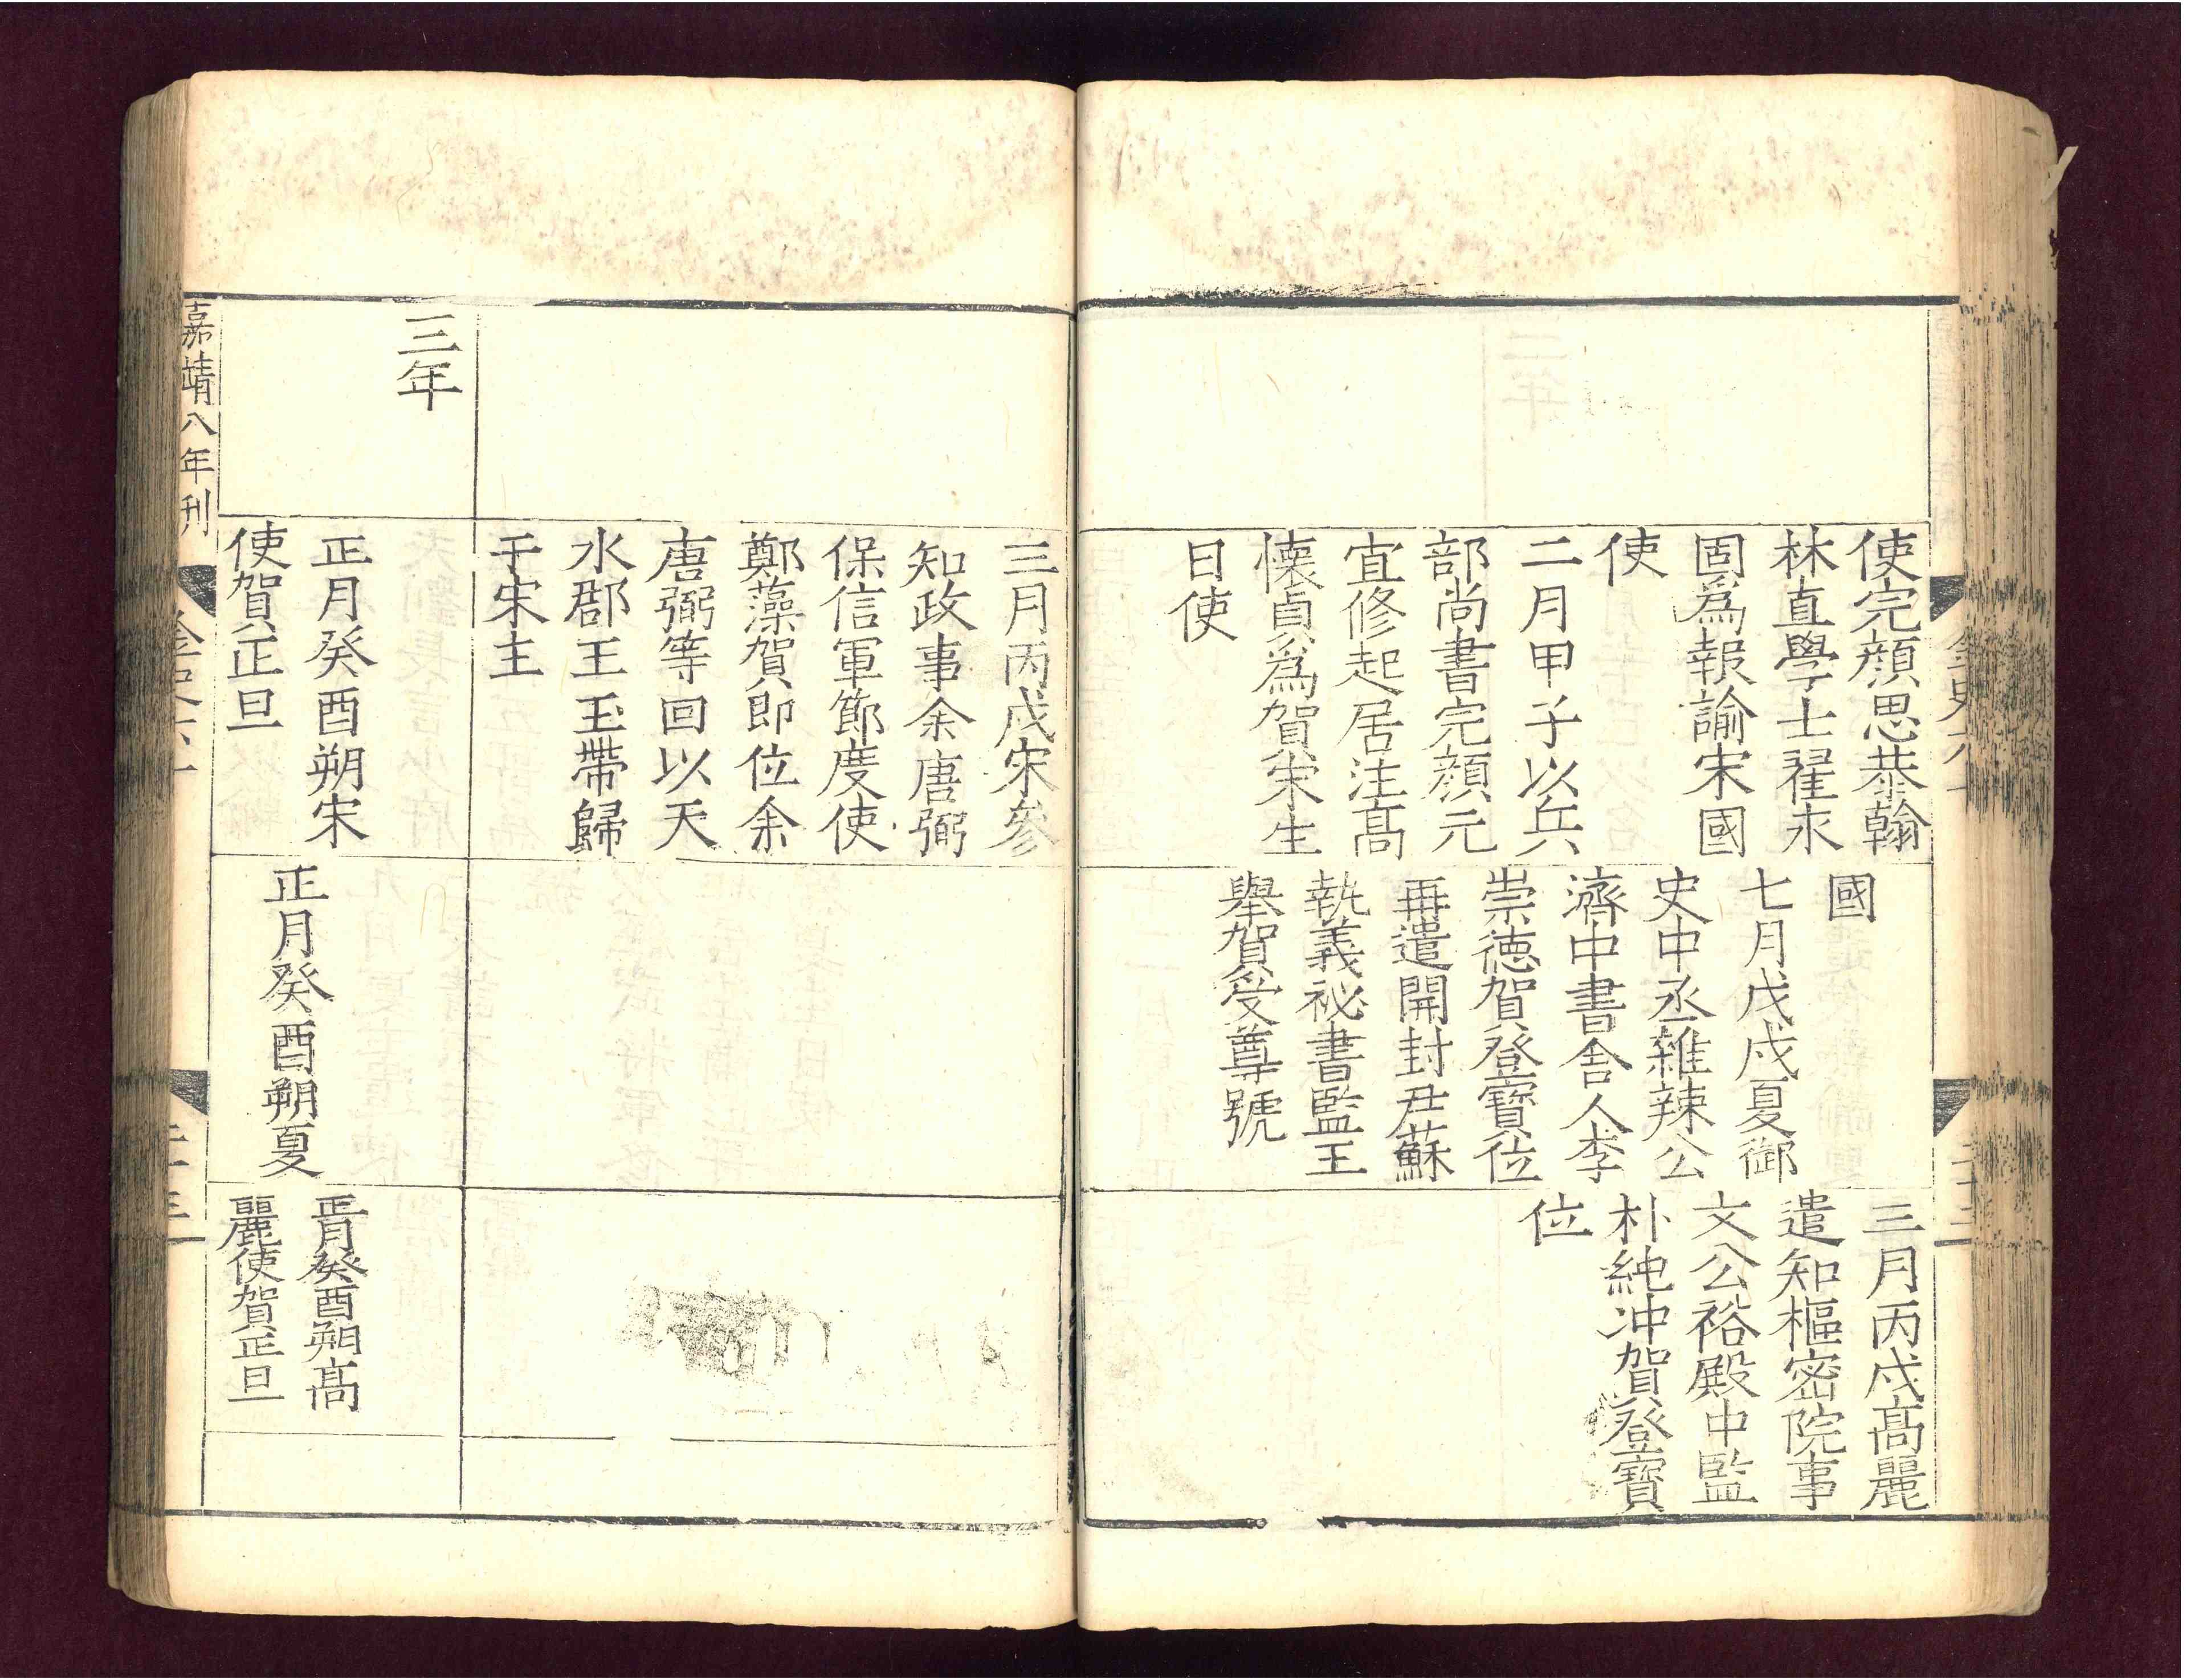 使完顔思恭翰
林直學士翟永
固爲報諭宋國
使
二月甲子以兵
部尚書完顔元
宜修起居注髙
懐貞爲賀宋生
日使
國
七月戊戌夏御
史中丞雜辣公
濟中書舎人李
崇德賀登寳位
再遣開封尹蘇
執義祕書監王
舉賀受尊號
三月丙戌髙麗
遣知樞密院事
文公裕殿中監
朴純冲賀登寳
位
三月丙戌宋參
知政事余唐弼
保信軍節度使
鄭藻賀即位余
唐弼等回以天
水郡王玉帶歸
于宋主
三年
正月癸酉朔宋
使賀正旦
正月癸酉朔夏
正月癸酉朔髙
麗使賀正旦
嘉靖八年刊